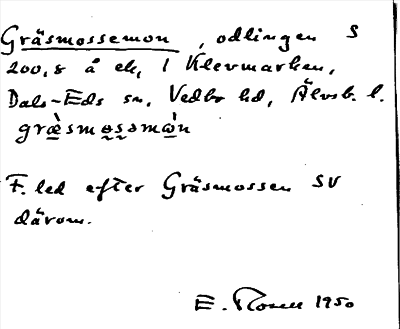 Gräsmossemon, odlingen S
200,8 å ek, 1 Klevmarken,
Dals-Eds sn, Vedbo hd, Älvsb. l.
græ̀smo̤s̤əmò̤n
F. led efter Gräsmossen SV
därom.
E. Rosell 1950